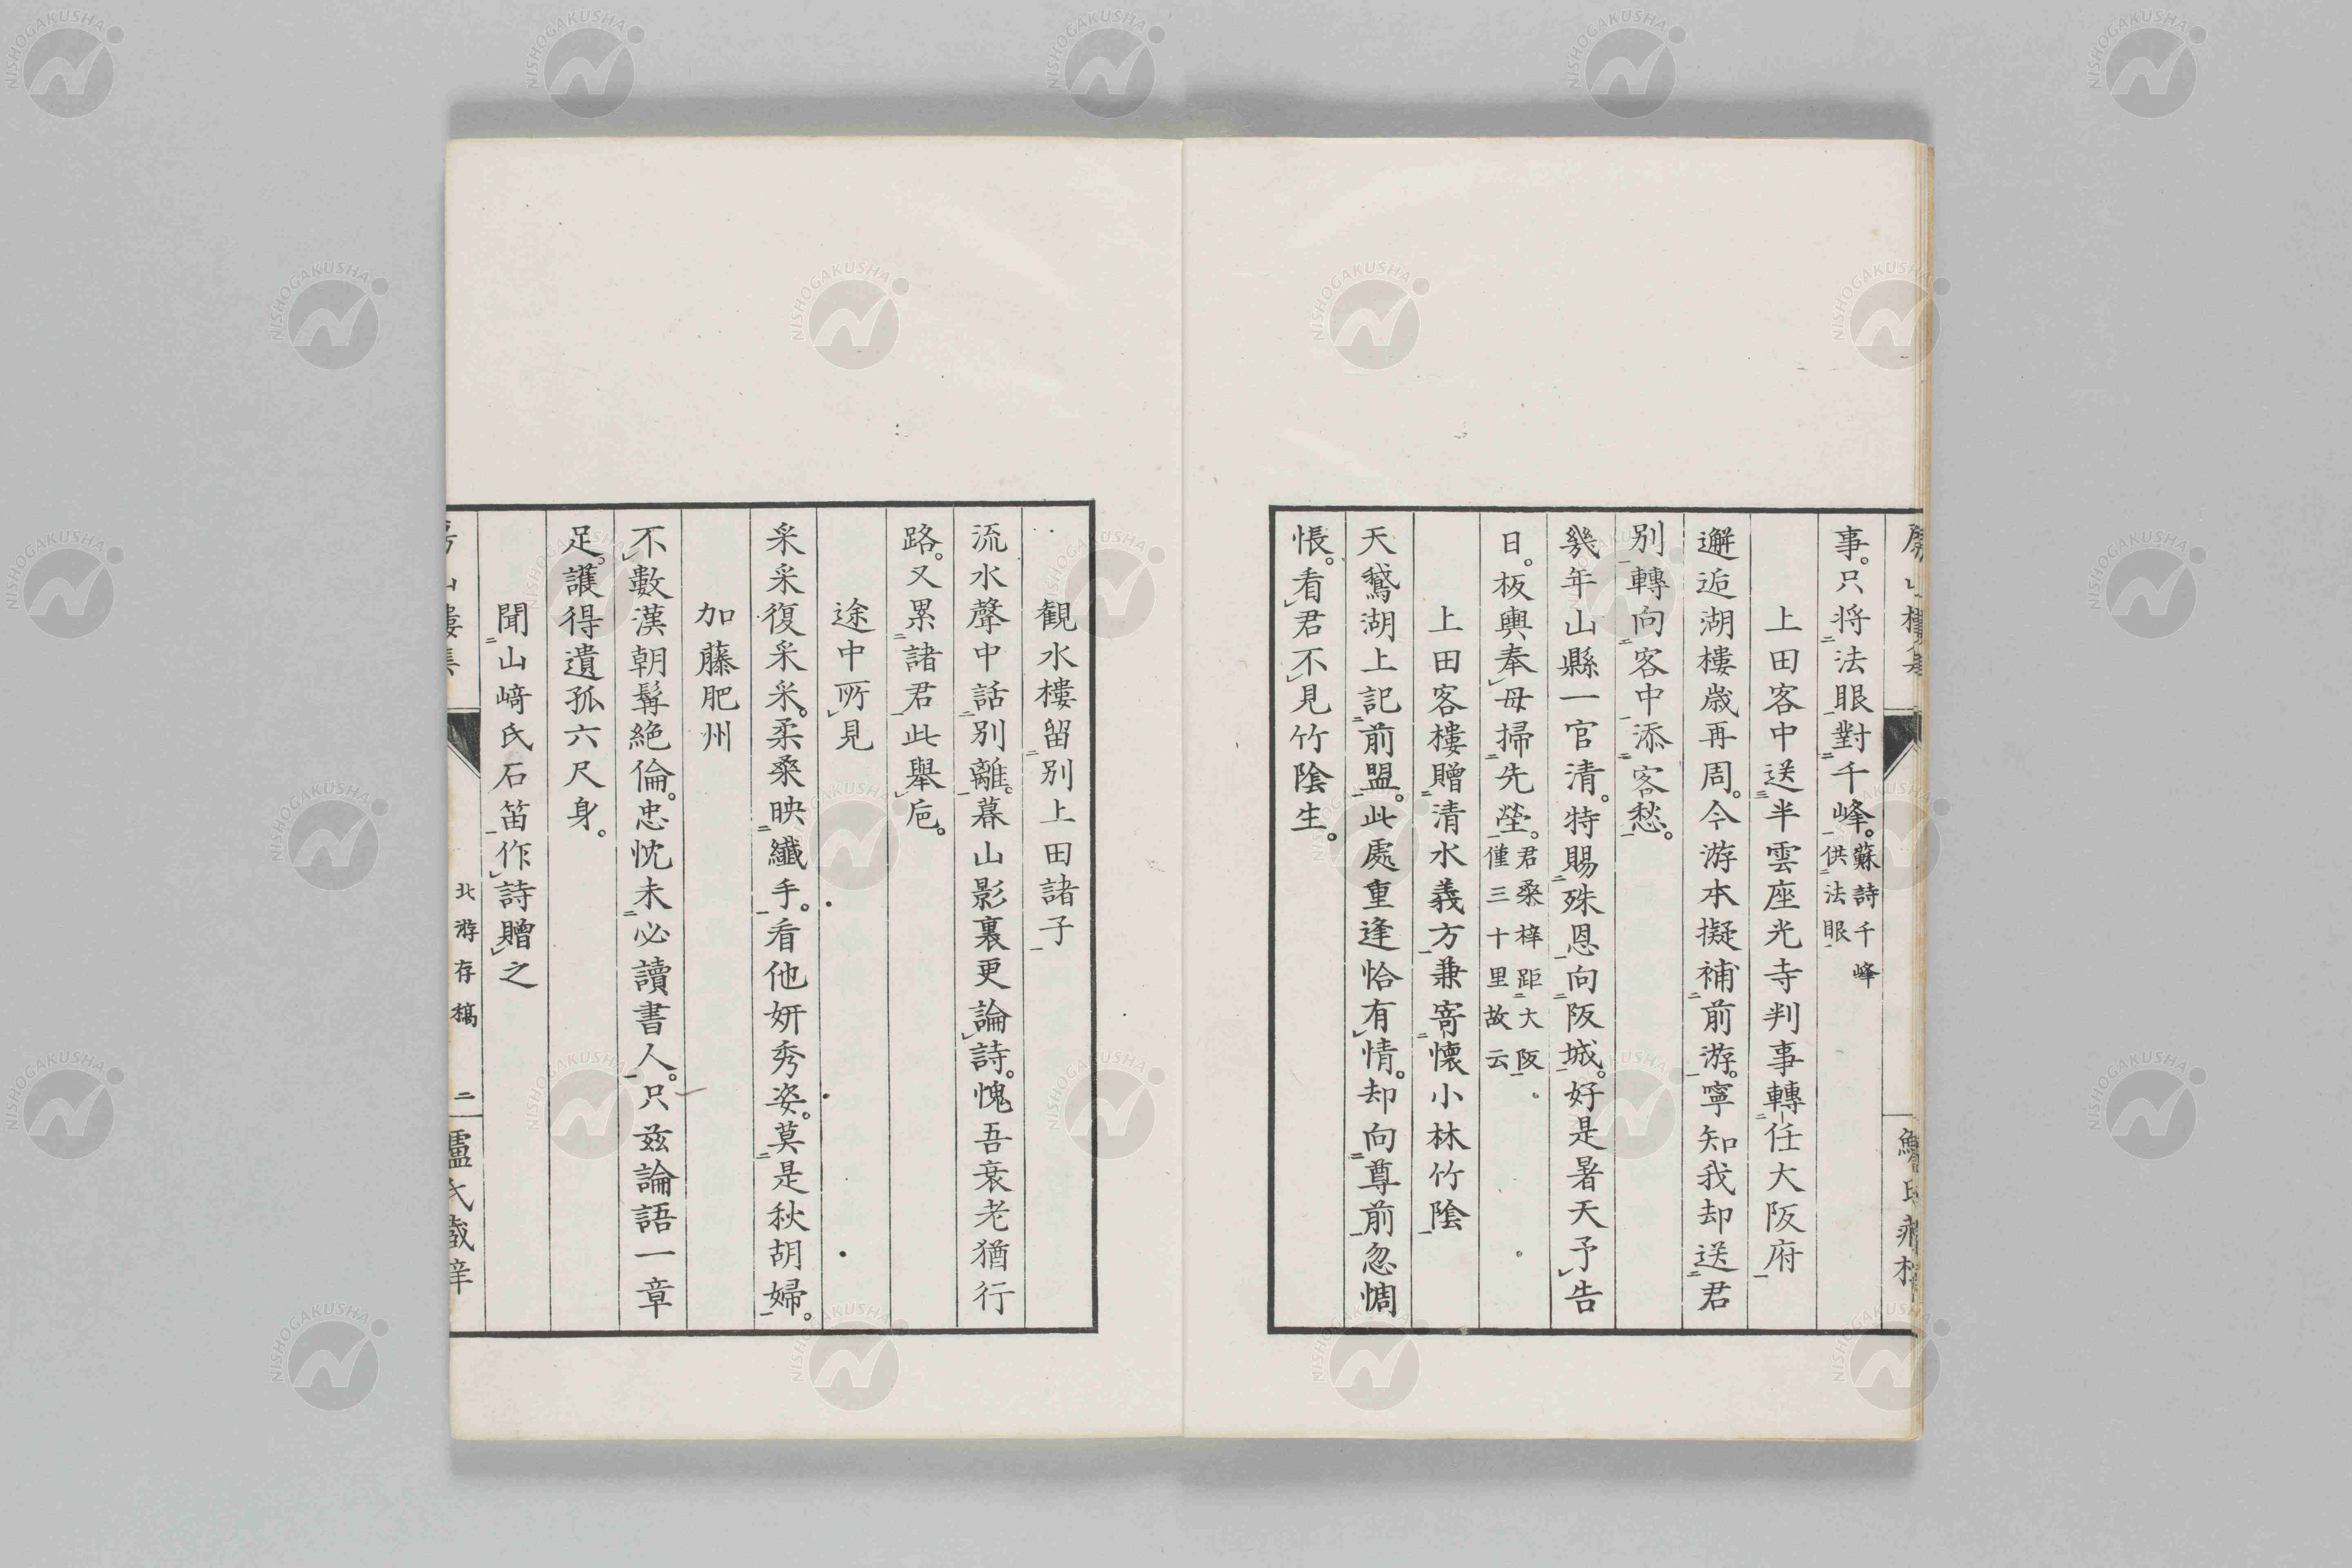 事。只将法眼對千峰。蘇詩千峰供法眼
上田客中送半雲座光寺判事轉任大阪府
邂逅湖樓歲再周。今游本擬補前游。寧知我却送君
別轉向客中添客愁。
幾年山縣一官清。特賜殊恩向阪城。好是暑天予告
日。板輿奉母掃先塋。君桑梓距大阪僅三十里故云
上田客樓贈清水義方兼寄懷小林竹陰
天鵞湖上記前盟。此處重逢恰有情。却向尊前忽惆
悵。看君不見竹陰生。
觀水樓留別上田諸子
流水聲中話別離。暮山影裏更論詩。愧吾衰老猶行
路。又累諸君此舉卮。
途中所見
采采復采采。柔桑映纖手。看他妍秀姿。莫是秋胡婦。
加藤肥州
不數漢朝髯絕倫。忠忱未必讀書人。只茲論語一章
足。護得遺孤六尺身。
聞山﨑氏石笛作詩贈之
北游存稿 二
NISHOGAKUSHA